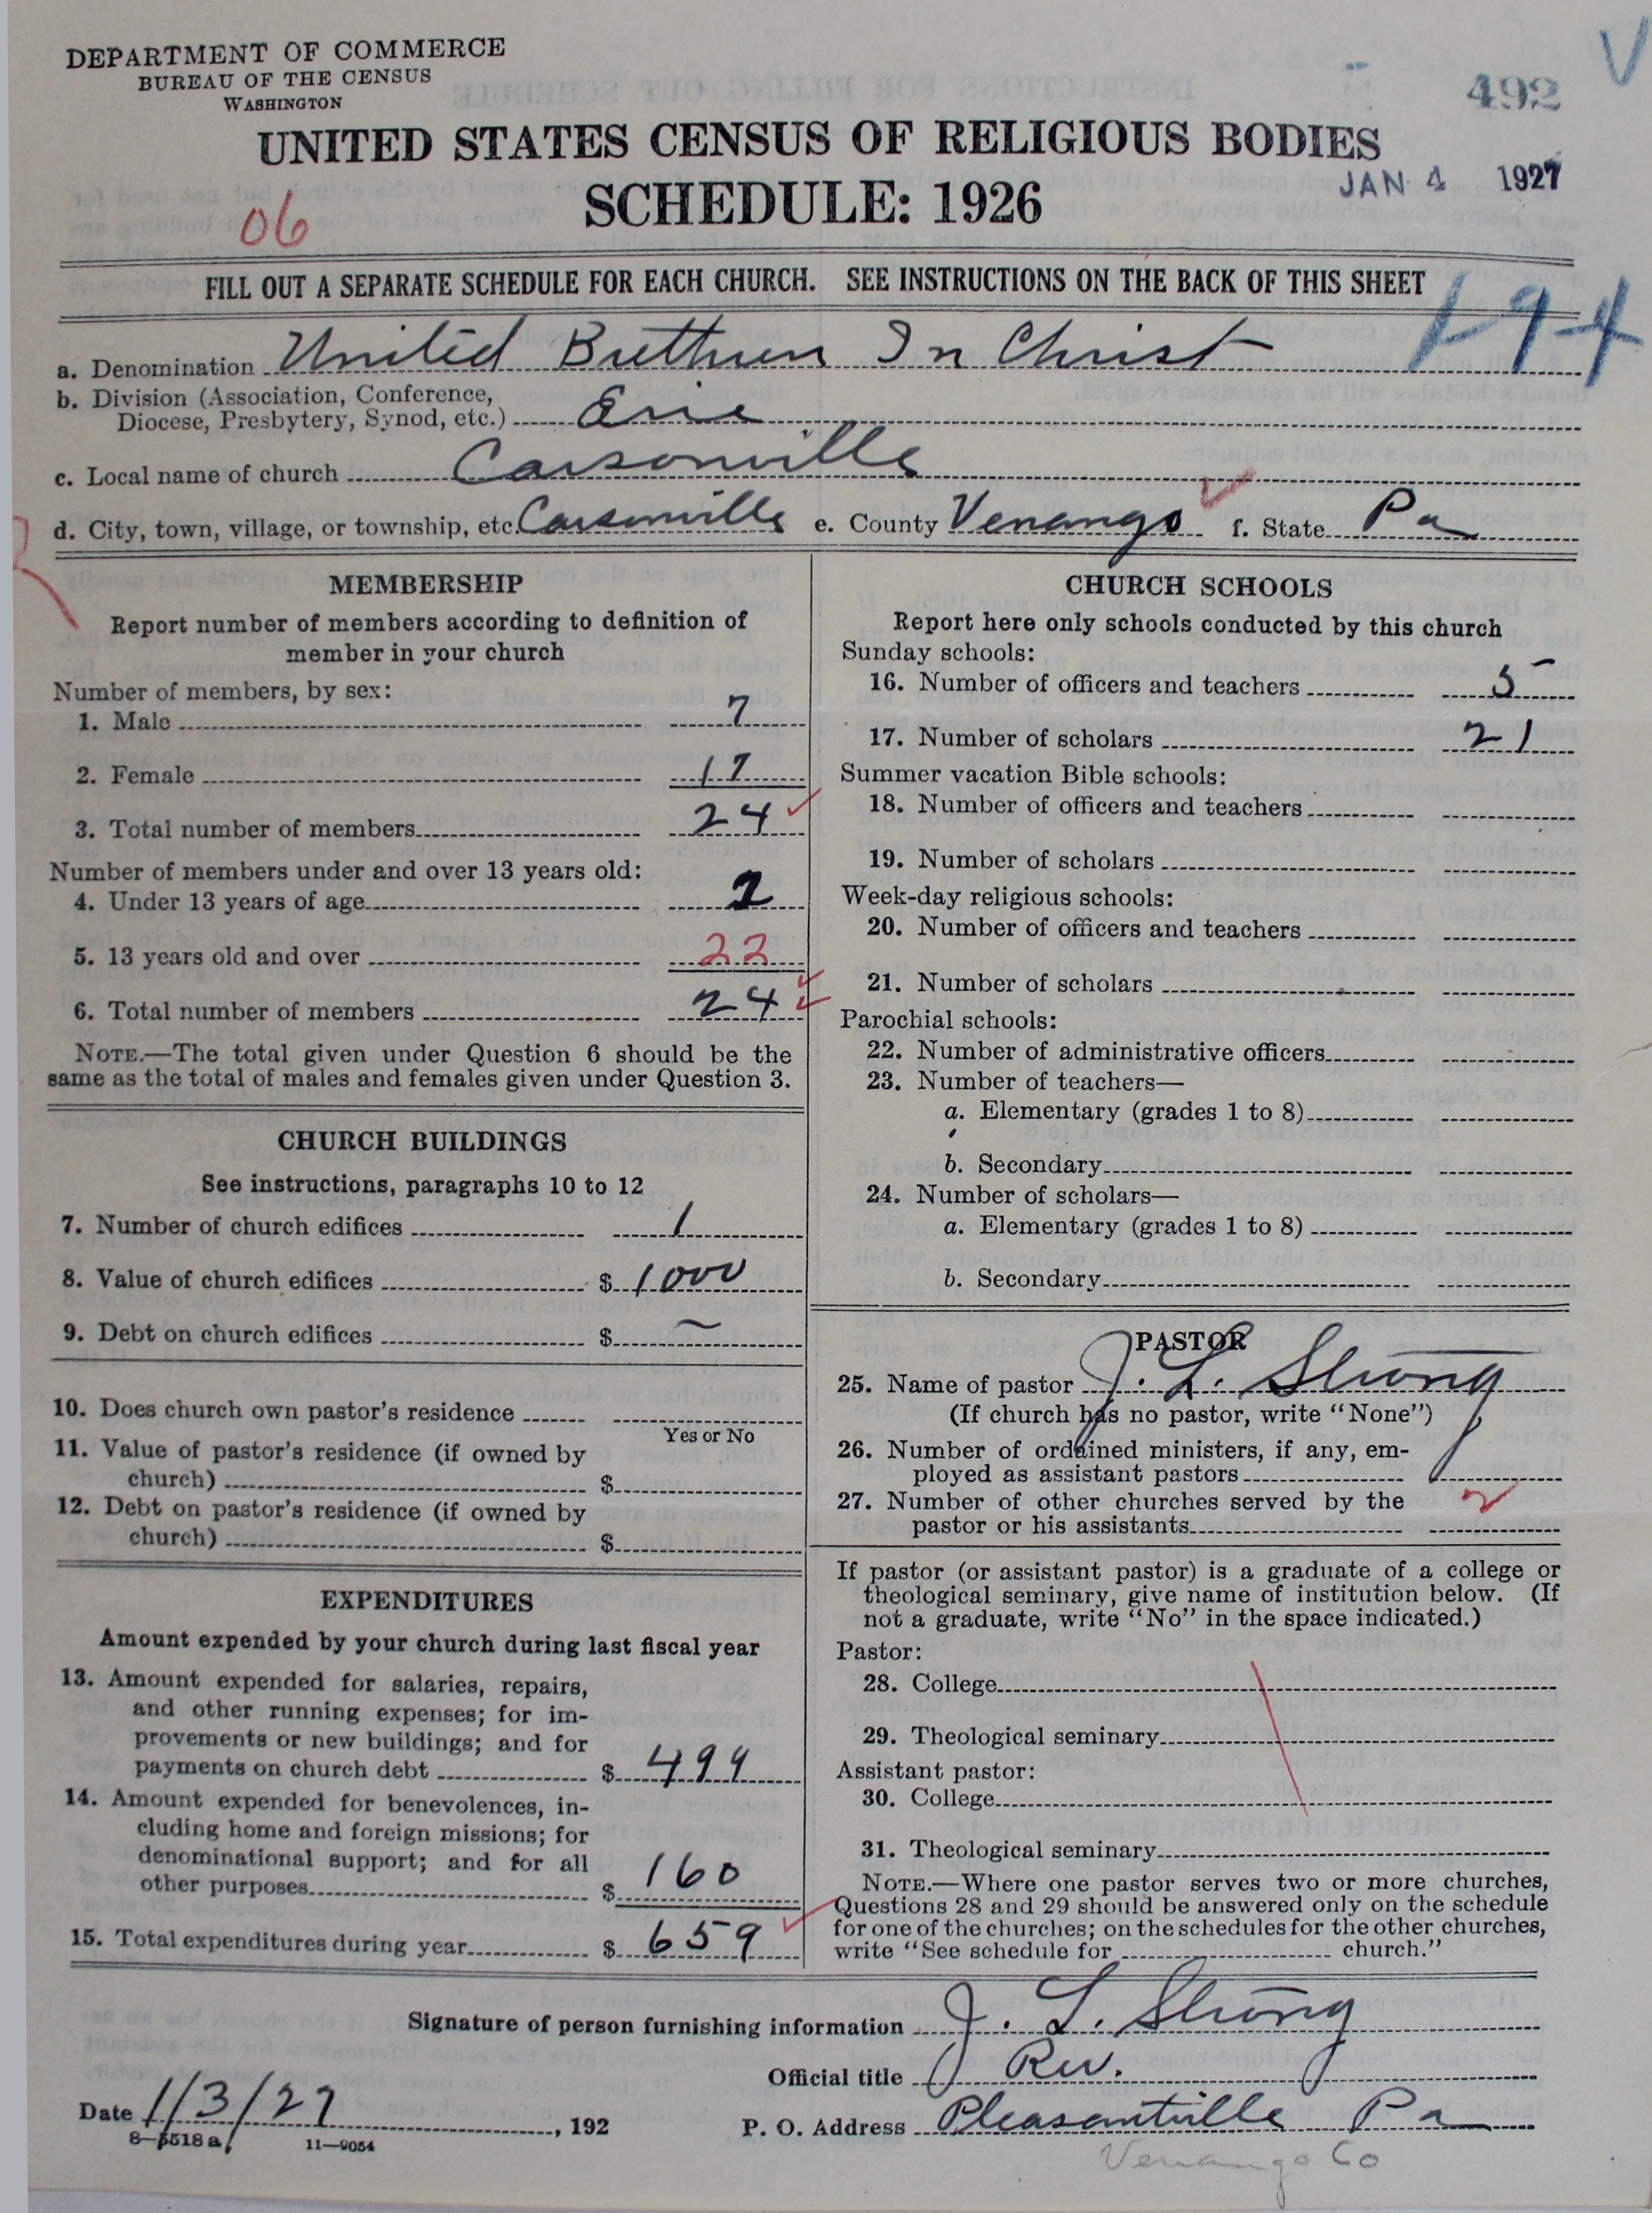 DEPARTMENT OF COMMERCE
BUREAU OF THE CENSUS
WASHINGTON
492
V
UNITED STATES CENSUS OF RELIGIOUS BODIES
SCHEDULE: 1926
JAN 4 1927
06
FILL OUT A SEPARATE SCHEDULE FOR EACH CHURCH. SEE INSTRUCTIONS ON THE BACK OF THIS SHEET
1-9-4
a. Denomination United Brethren In Christ
b. Division (Association, Conference,
Diocese, Presbytery, Synod, etc.) Erie
c. Local name of church Carsonville
d. City, town, village, or township, etc. Carsonville e. County Venango f. State Pa
MEMBERSHIP
Report number of members according to definition of
member in your church
Number of members, by sex:
1. Male 7
2. Female 17
3. Total number of members 24
Number of members under and over 13 years old:
4. Under 13 years of age 2
5. 13 years old and over 22
6. Total number of members 24
NOTE.—The total given under Question 6 should be the
same as the total of males and females given under Question 3.
CHURCH BUILDINGS
See instructions, paragraphs 10 to 12
7. Number of church edifices 1
8. Value of church edifices $ 1000
9. Debt on church edifices $ —
10. Does church own pastor's residence
Yes or No
11. Value of pastor's residence (if owned by
church) $
12. Debt on pastor's residence (if owned by
church) $
EXPENDITURES
Amount expended by your church during last fiscal year
13. Amount expended for salaries, repairs,
and other running expenses; for im-
provements or new buildings; and for
payments on church debt $ 499
14. Amount expended for benevolences, in-
cluding home and foreign missions; for
denominational support; and for all
other purposes $ 160
15. Total expenditures during year $ 659
CHURCH SCHOOLS
Report here only schools conducted by this church
Sunday schools:
16. Number of officers and teachers 5
17. Number of scholars 21
Summer vacation Bible schools:
18. Number of officers and teachers
19. Number of scholars
Week-day religious schools:
20. Number of officers and teachers
21. Number of scholars
Parochial schools:
22. Number of administrative officers
23. Number of teachers—
a. Elementary (grades 1 to 8)
b. Secondary
24. Number of scholars—
a. Elementary (grades 1 to 8)
b. Secondary
PASTOR
25. Name of pastor J. L. Strong
(If church has no pastor, write "None")
26. Number of ordained ministers, if any, em-
ployed as assistant pastors
27. Number of other churches served by the
pastor or his assistants
If pastor (or assistant pastor) is a graduate of a college or
theological seminary, give name of institution below. (If
not a graduate, write "No" in the space indicated.)
Pastor:
28. College
29. Theological seminary
Assistant pastor:
30. College
31. Theological seminary
NOTE.—Where one pastor serves two or more churches,
Questions 28 and 29 should be answered only on the schedule
for one of the churches; on the schedules for the other churches,
write "See schedule for church."
Signature of person furnishing information J. L. Strong
Official title Rev.
Date 1/3/27, 192
P. O. Address Pleasantville Pa
Venango Co
8-5518a 11-9054